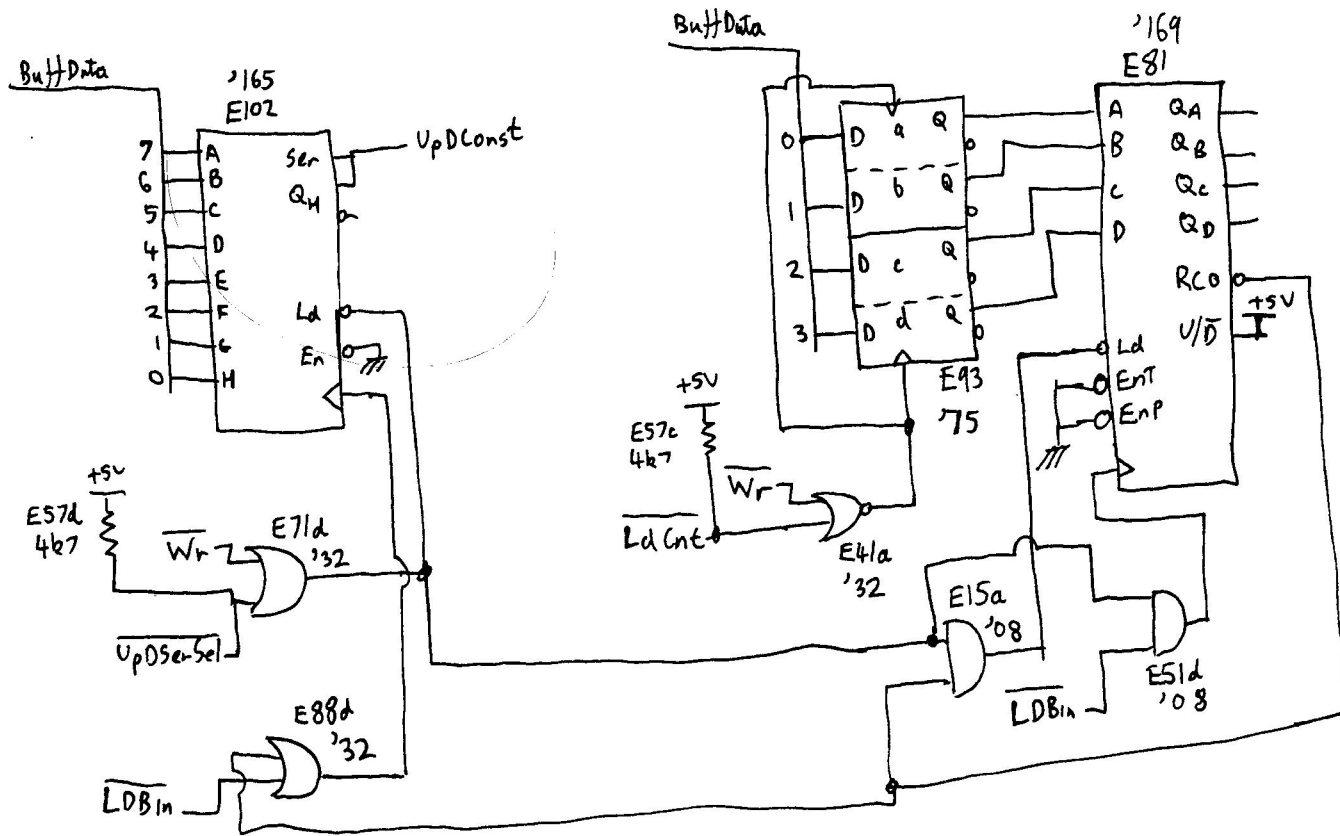 BuffData
'165
E102
7 A
6 B
5 C
4 D
3 E
2 F
1 G
0 H
Ser
QH
Ld
En
UpDConst
+5V
E57d
4k7
Wr
E71d
'32
UpDSerSel
E88d
'32
LDBin
BuffData
0 D a Q
1 D b Q
2 D c Q
3 D d Q
E93
'75
+5V
E57c
4k7
Wr
LdCnt
E41a
'32
'169
E81
A QA
B QB
C QC
D QD
RCO
+5V
U/D
Ld
EnT
EnP
E15a
'08
LDBin
E51d
'08